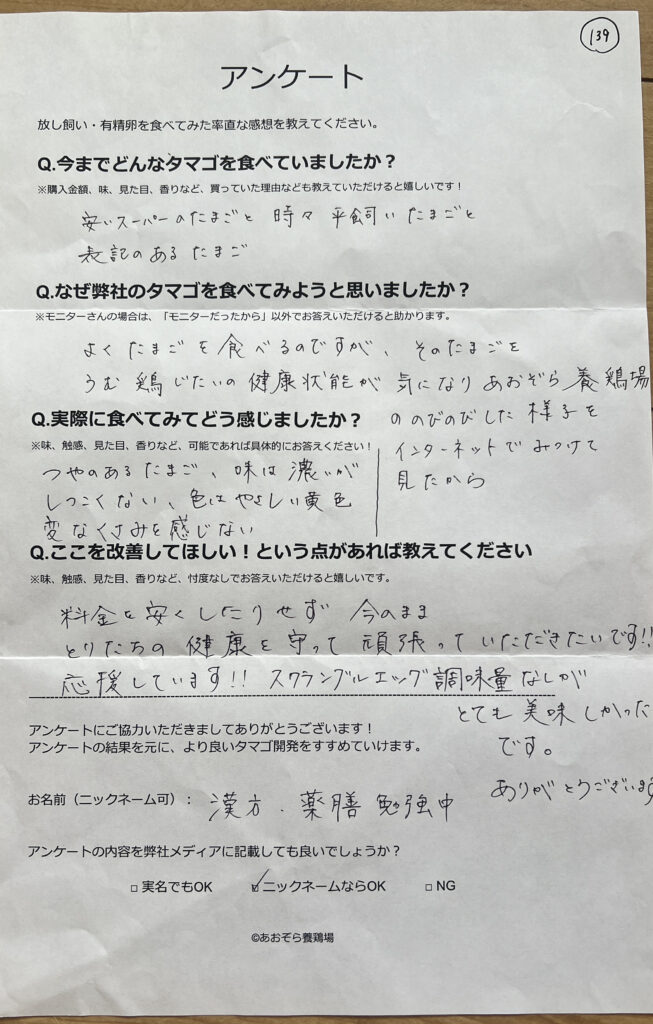 139
アンケート
放し飼い・有精卵を食べてみた率直な感想を教えてください。
Q.今までどんなタマゴを食べていましたか？
※購入金額、味、見た目、香りなど、買っていた理由なども教えていただけると嬉しいです！
安いスーパーのたまごと 時々 平飼いたまごと
表記のあるたまご
Q.なぜ弊社のタマゴを食べてみようと思いましたか？
※モニターさんの場合は、「モニターだったから」以外でお答えいただけると助かります。
よくたまごを食べるのですが、そのたまごを
うむ 鶏じたいの健康状態が 気になり あおぞら養鶏場
ののびのびした様子を
インターネットでみつけて
見たから
Q.実際に食べてみてどう感じましたか？
※味、触感、見た目、香りなど、可能であれば具体的にお答えください！
つやのあるたまご、味は濃いが
しつこくない、色はやさしい黄色
変なくさみを感じない
Q.ここを改善してほしい！という点があれば教えてください
※味、触感、見た目、香りなど、忖度なしでお答えいただけると嬉しいです。
料金を安くしたりせず 今のまま
とりたちの健康を守って頑張っていただきたいです!!
応援しています!! スクランブルエッグ調味量なしが
とても美味しかった
です。
ありがとうございます
アンケートにご協力いただきましてありがとうございます！
アンケートの結果を元に、より良いタマゴ開発をすすめていけます。
お名前（ニックネーム可）： 漢方．薬膳 勉強中
アンケートの内容を弊社メディアに記載しても良いでしょうか？
□ 実名でもOK ☑ ニックネームならOK □ NG
©あおぞら養鶏場